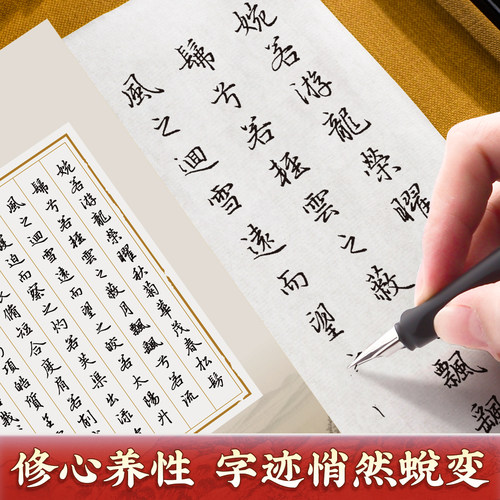 婉若游龍榮曜
髴兮若輕雲之蔽飄
風之迴雪遠而望
婉若游龍榮曜秋菊華茂春松髣
髴兮若輕雲之蔽月飄飄兮若流
風之迴雪遠而望之皎若太陽升
迫而察之灼若芙渠出淥
脩短合度肩若削
項皓質呈
修心养性 字迹悄然蜕变